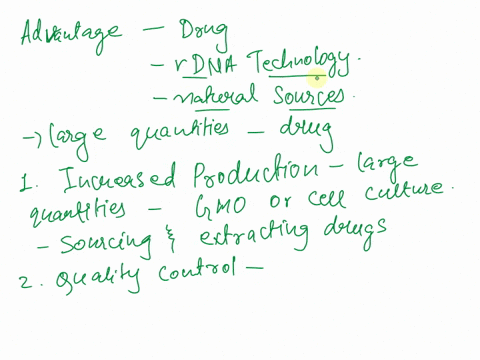 Advantage - Drug
- rDNA Technology.
- natural Sources.
→ large quantities - drug
1. Increased Production - large
quantities - GMO or cell culture.
- Sourcing & extracting drugs
2. Quality control -